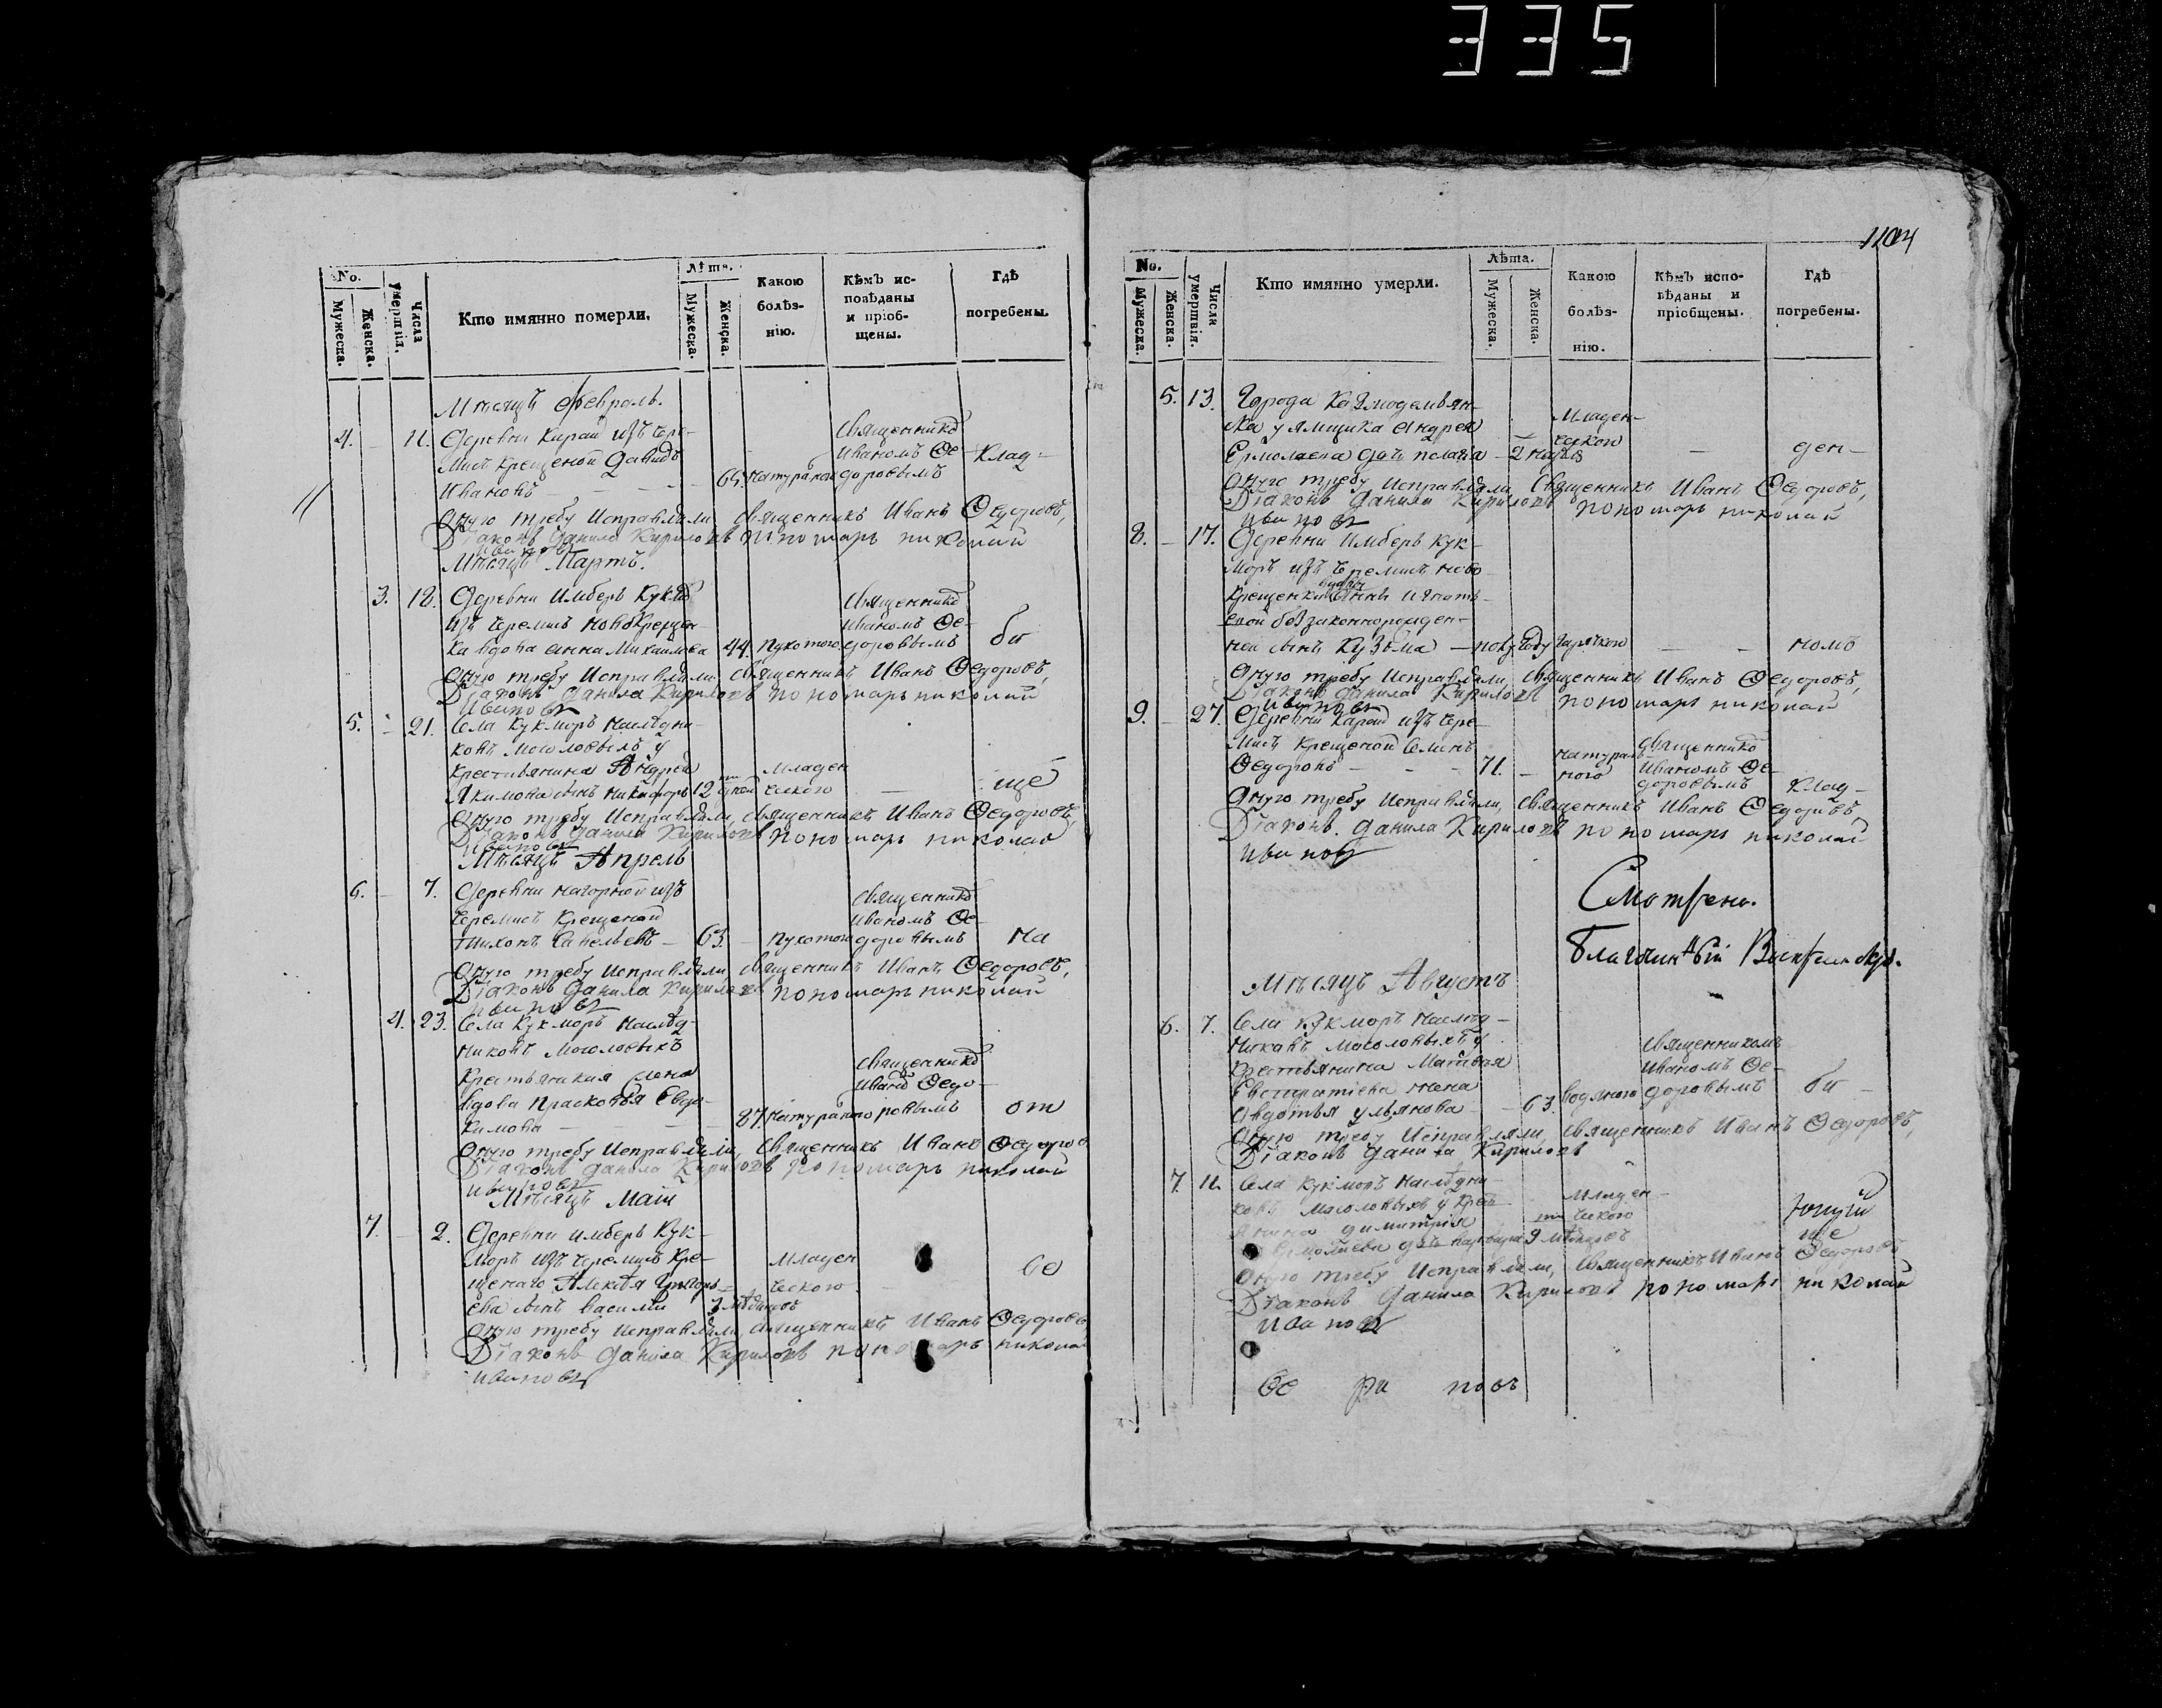 335
1104
No.
Мужеска.
Женска.
Числа умертвія.
Кто имянно померли.
Лѣта.
Мужеска.
Женска.
Какою болѣз-
нію.
Кѣмъ ис-
повѣданы
и пріоб-
щены.
Гдѣ
погребены.
Мѣсяцъ Февраль.
4. 11. Деревни Караи изъ чере-
мисъ крещеной Давидъ
Ивановъ 65 натуральной
Священникомъ
Иваномъ Фе-
доровымъ
Клад-
Оную требу Исправляли священникъ Иванъ Федоровъ,
Діаконъ Данила Кириловъ пономарь николай
ивановъ
Мѣсяцъ Мартъ.
3. 18. Деревни Имберь Кукмо
изъ черемисъ новокреще-
ка вдова анна Михаилова 44. Чухотою
Священникомъ
Иваномъ Фе-
доровымъ
би
Оную требу Исправляли священникъ Иванъ Федоровъ,
Діаконъ Данила Кириловъ пономарь николай
ивановъ
5. 21. Села Кукморъ наслѣдни-
ковъ мосоловыхъ у
крестьянина Андрея
Акимова сынъ никифоръ 12 дней
младен
ческого
ще
Оную требу Исправляли, священникъ Иванъ Федоровъ,
Діаконъ Данила Кириловъ пономарь николай
ивановъ
Мѣсяцъ Апрель
6. 7. Деревни нагорной изъ
черемисъ крещеной
тихонъ Савельевъ 63. Чухотою
священникомъ
Иваномъ Фе-
доровымъ
на
Оную требу Исправляли священникъ Иванъ Федоровъ,
Діаконъ Данила Кириловъ пономарь николай
ивановъ
4. 23. Села Кукморъ наслѣд-
никовъ мосоловыхъ
крестьянина жена
вдова прасковья Евдо-
кимова 87. натурально
священникомъ
Иваномъ Федо-
ровымъ
от
Оную требу Исправляли, священникъ Иванъ Федоров
Діаконъ Данила Кириловъ пономарь николай
ивановъ
Мѣсяцъ Маій
7. 2. Деревни Имберь Кук-
моръ изъ черемисъ кре-
щенаго Алексѣя Григорь-
ева сынъ Василій 3 мѣсяцовъ
младен
ческого
во
Оную требу исправляли, священникъ Иванъ Федоровъ,
Діаконъ Данила Кириловъ пономарь николай
ивановъ
No.
Мужеска.
Женска.
Числа умертвія.
Кто имянно умерли.
Лѣта.
Мужеска.
Женска.
Какою
болѣз-
нію.
Кѣмъ испо-
вѣданы и
пріобщены.
Гдѣ
погребены.
5. 13. Города Казмодемьян-
ска у ямщика Андрея
Ермолаева дочь пелагя 2
младен-
ческою
ден-
Оную требу исправляли, Священникъ Иванъ Федоровъ,
Діаконъ Данила Кириловъ пономарь николай
ивановъ
8. 17. Деревни Имберь Кук-
моръ изъ черемисъ ново-
крещенки вдовы Анны Игнать-
евой беззаконнорожден-
ной сынъ Кузьма полугоду горячкою
номъ
Оную требу исправляли, Священникъ Иванъ Федоровъ,
Діаконъ Данила Кириловъ пономарь николай
ивановъ
9. 27. Деревни Караи изъ чере-
мисъ крещеной Семенъ
Федоровъ 71. натураль-
ного
священникомъ
Иваномъ Фе-
доровымъ
клад-
Оную требу Исправляли, Священникъ Иванъ Федоровъ,
Діаконъ. Данила Кириловъ пономарь николай
ивановъ
Смотрено.
Благочинный
Мѣсяцъ Августъ
6. 7. Села Кукморъ наслѣд-
никовъ мосоловыхъ у
крестьянина Матвея
Евстратіева жена
Авдотья Ульянова 63. водяного
священникомъ
Иваномъ Фе-
доровымъ
би-
Оную требу Исправляли, священникъ Иванъ Федоровъ,
Діаконъ Данила Кириловъ
7. 11. Села Кукморъ наслѣдни-
ковъ мосоловыхъ у крест-
янина димитрія
9 мѣсяцовъ
младен-
ческого
ще
Оную требу Исправляли, священникъ Иванъ Федоровъ
Діаконъ Данила Кириловъ пономарь николай
ивановъ